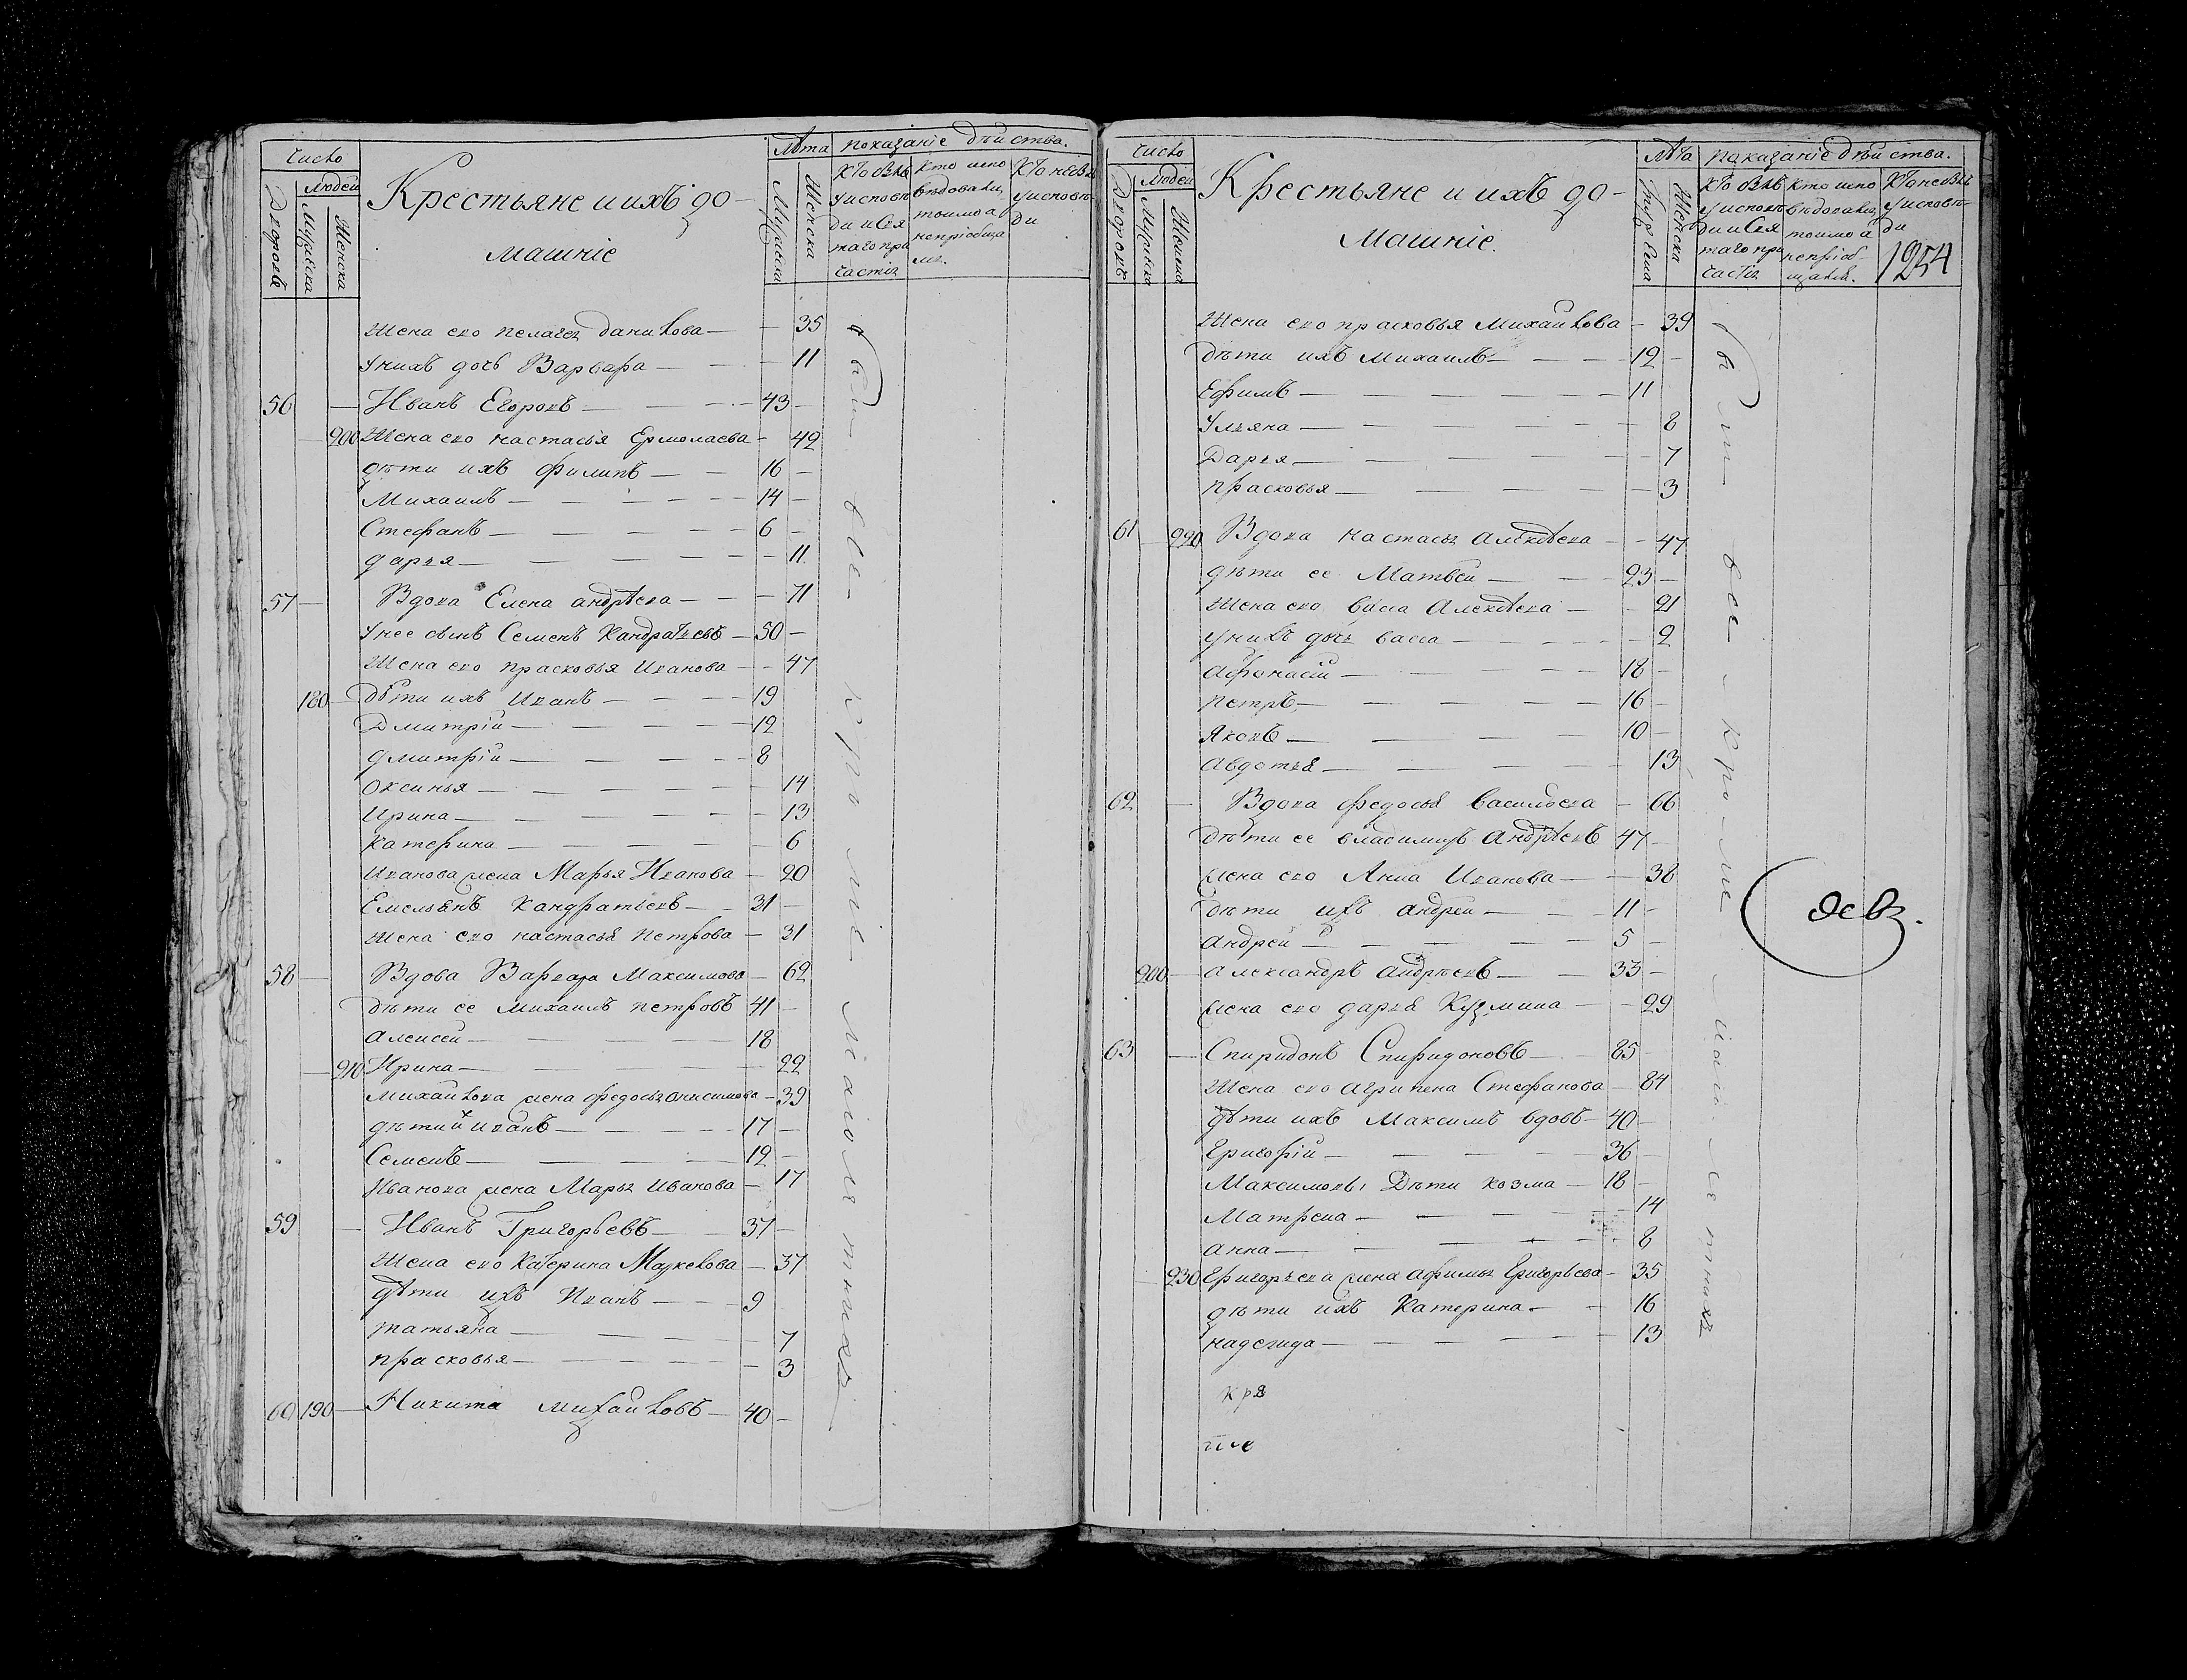 Число
Людей
Дворовъ
Мужеска
Женска
Крестьяне и ихъ до-
машніе
Лѣта
Мужеска
Женска
показаніе дѣйства.
кто былъ
у исповѣ
ди и свя
таго при
частія
кто испо
вѣдовались
токмо а
непріобща
лис.
кто небылъ
у исповѣ
ди
жена его пелагея данилова — 35
у нихъ дочь Варвара — 11
56 — Иванъ Егоровъ — 43
200 жена его настасья Ермолаева — 42
дѣти ихъ филипъ — 16
Михаилъ — 14
Стефанъ — 6
дарья — 11
57 — Вдова Елена андрѣева — 71
у нее сынъ Семенъ Кандратьевъ — 50
жена его прасковья Иванова — 47
180 дѣти ихъ Иванъ — 19
Дмитрій — 12
дмитрій — 8
оксинья — 14
Ирина — 13
катерина — 6
Иванова жена Марья Иванова — 20
Емельянъ Кандратьевъ — 31
жена его настасья петрова — 31
58 — Вдова Варвара Максимова — 62
дѣти ее михаилъ петровъ 41
алексей — 18
210 Ирина — 22
михайлова жена федосья онисимова — 39
дѣти иванъ — 17
Семенъ — 12
Иванова жена Марья Иванова — 17
59 — Иванъ Григорьевъ — 37
жена его катерина — 37
дѣти ихъ Иванъ — 9
татьяна — 7
прасковья — 3
60 190 — Никита михайловъ — 40
были все кроме малолетних
Число
Людей
Дворовъ
Мужеска
Женска
Крестьяне и ихъ до-
машніе.
Лѣта
Женска
показаніе дѣйства.
кто былъ
у исповѣ
ди и свя
таго при
частія
кто испо
вѣдовались
токмо а
непріоб-
щались.
кто небылъ
у исповѣ-
ди
1254
жена его прасковья михайлова — 39
дѣти ихъ михаилъ — 12
Ефимъ — 11
Ульяна — 8
Дарья — 7
прасковья — 3
61 220 Вдова настасья алексѣева — 47
дѣти ее Матвей — 23
жена его васса алексѣева — 21
у нихъ дочь васса — 2
афонасій — 18
петръ — 16
Яковъ — 10
авдотья — 13
62 — Вдова федосья васильева — 66
дѣти ее владимиръ андрѣевъ 47
жена его Анна Иванова — 38
дѣти ихъ андрей — 11
андрей — 5
200 — александръ андрѣевъ — 33
жена его дарья Кузмина — 29
63 — Спиридонъ Спиридоновъ — 85
жена его агрипена Стефанова — 84
дѣти ихъ Максимъ вдовъ — 40
григорій — 36
Максимовы дѣти козма — 18
Матрена — 14
анна — 8
230 григорьева жена афимья григорьева — 35
дѣти ихъ Катерина — 16
надежда — 13
были все кроме малолетнихъ